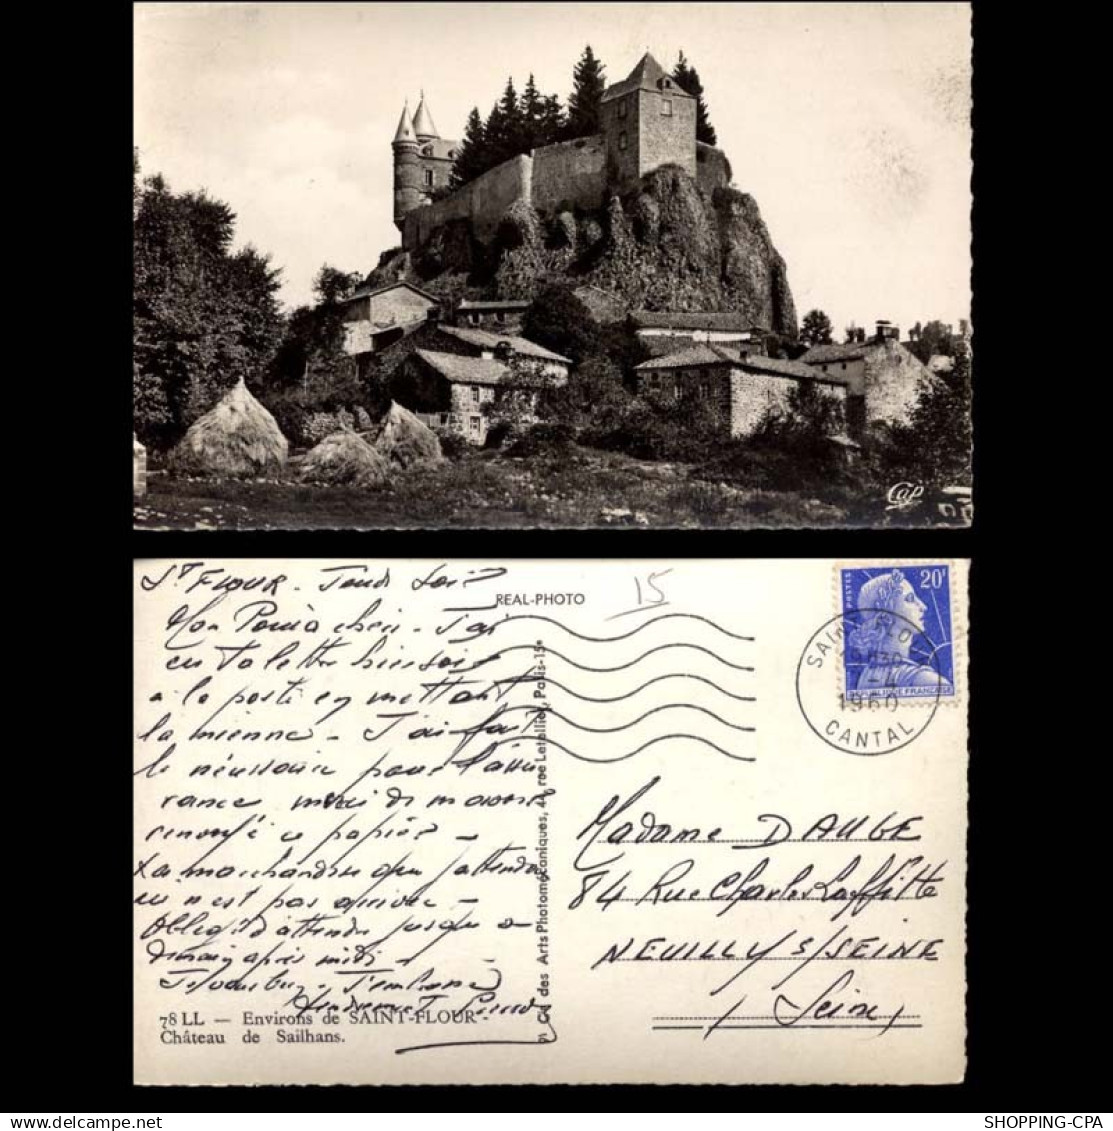 Cap
St FLOUR - Jeudi soir
REAL-PHOTO
15
20F
POSTES
REPUBLIQUE FRANÇAISE
SAINT FLOUR
1960
CANTAL
Mon cheri - J'ai
eu ta lettre hier soir
a la poste en mettant
la mienne - J'ai fait
le nécessaire pour l'assu
rance merci de m'avoir
renvoyé ce papier -
La marchandise que j'attendais
n'est pas arrivée -
Obligé d'attendre jusqu'a
demain après midi -
Je t'embrasse
tendrement
78 LL — Environs de SAINT-FLOUR -
Château de Sailhans.
Cie des Arts Photomécaniques, 44, rue Letellier, Paris-15e
Madame DAUGE
84 Rue Charles Laffitte
NEUILLY S/SEINE
(Seine)
SHOPPING-CPA